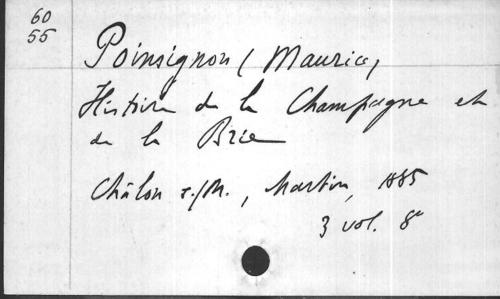 60
55
Poinsignon (Maurice)
Histoire de la Champagne et
de la Brie
Châlon s./M., Martin, 1885
3 vol. 8°